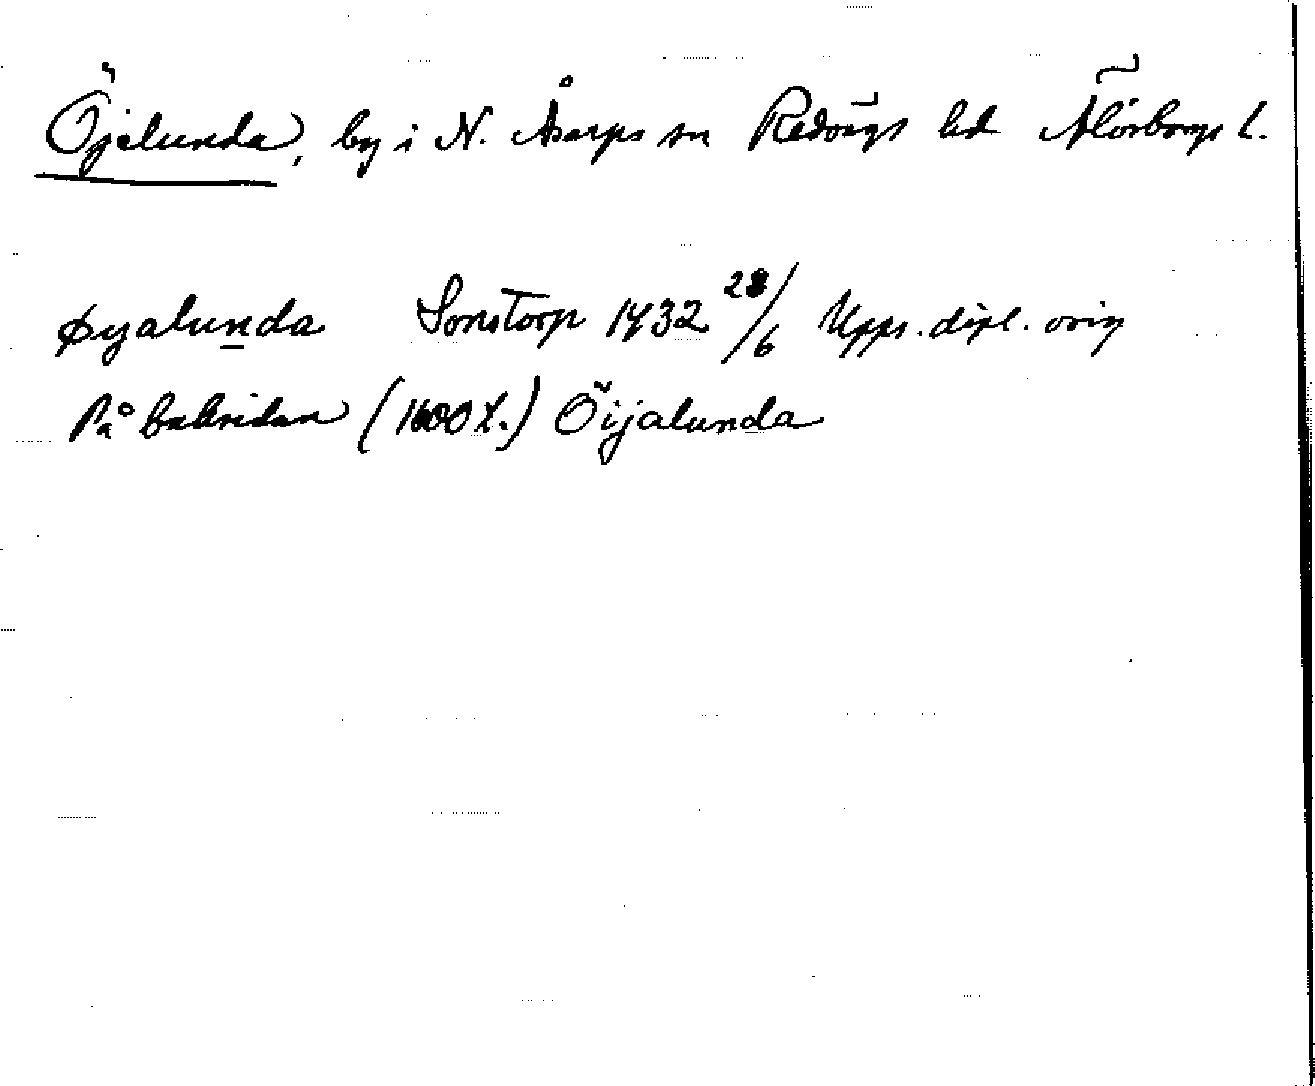 Öjalunda, by i N. Åsarps sn Redvägs hd Älvsborgs l.
øyalunda Sonstorp 1432 28/6 Upps. dipl. orig
På baksidan (1600 t.) Öijalunda